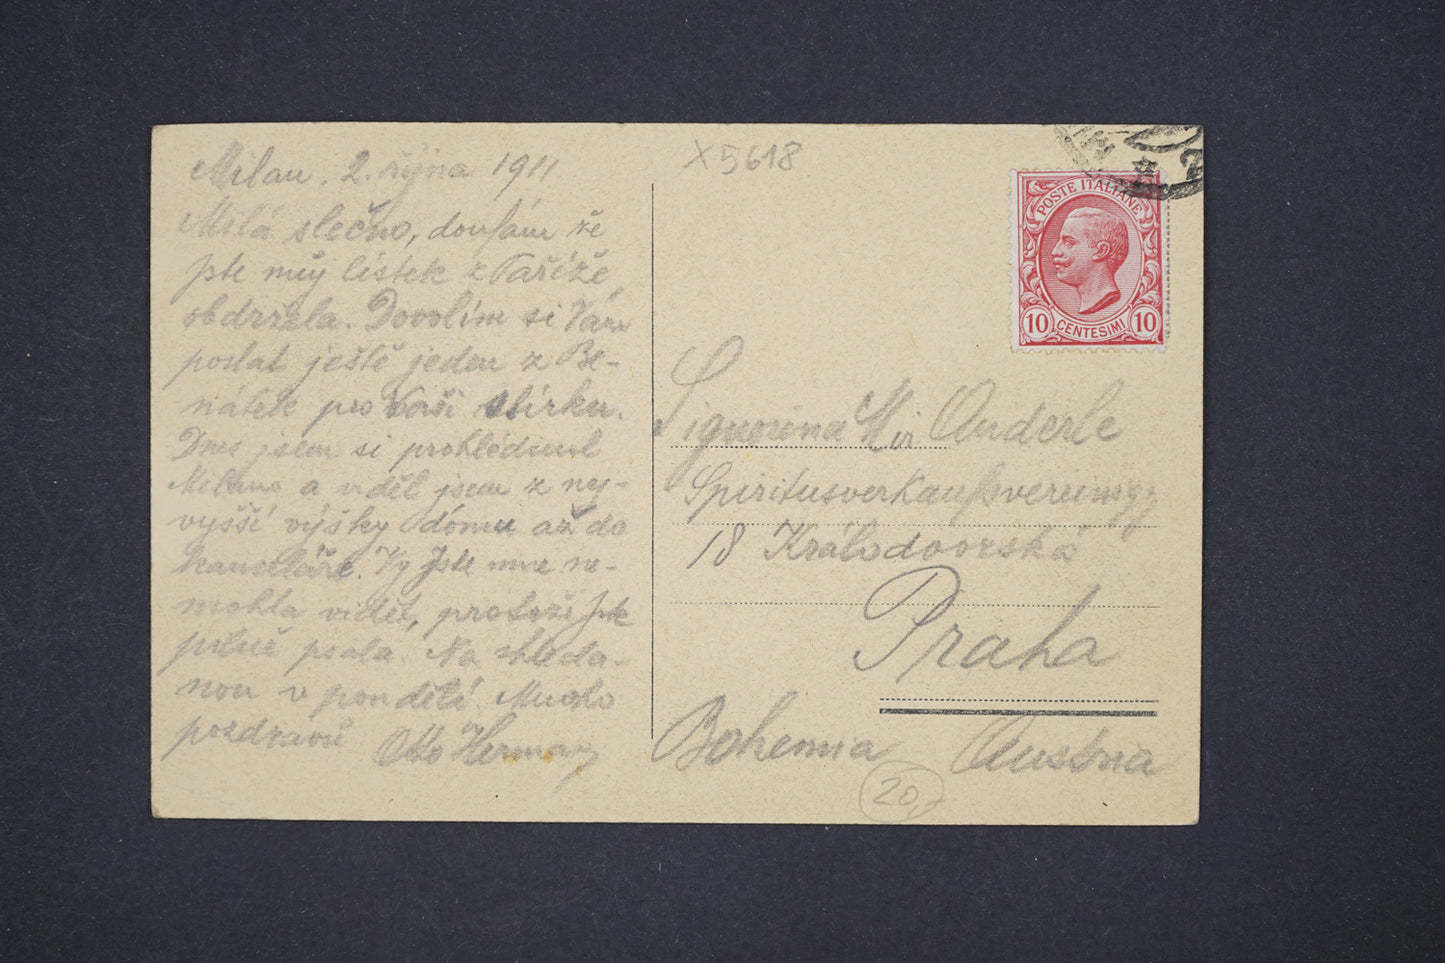 Milan, 2. října 1911
Milá slečno, doufám že
jste můj lístek z Paříže
obdržela. Dovolím si Vám
poslat ještě jeden z Be-
nátek pro Vaši sbírku.
Dnes jsem si prohlédnul
Milano a viděl jsem z nej-
vyšší výšky dómu až do
kanceláře. Vy jste mne ne-
mohla vidět, protože jste
pilně psala. Na shleda-
nou v pondělí. Mnoho
pozdravů Otto Hermann
X5618
POSTE ITALIANE
10 CENTESIMI 10
Signorina Anderle
Spiritusverkaufsvereinigg
18 Králodvorská
Praha
Bohemia Austria
20,-